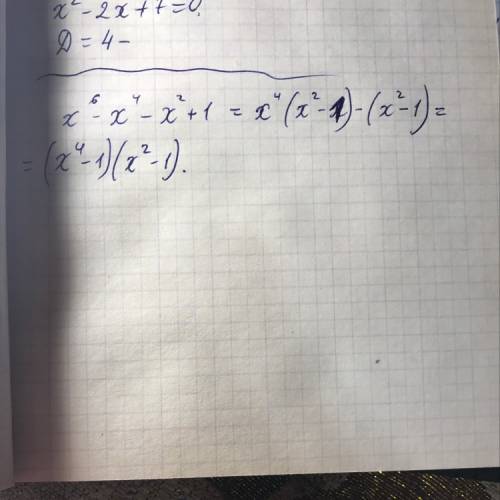 x² - 2x + 7 = 0.
D = 4 -
x⁶ - x⁴ - x² + 1 = x⁴(x² - 1) - (x² - 1) =
= (x⁴ - 1)(x² - 1).